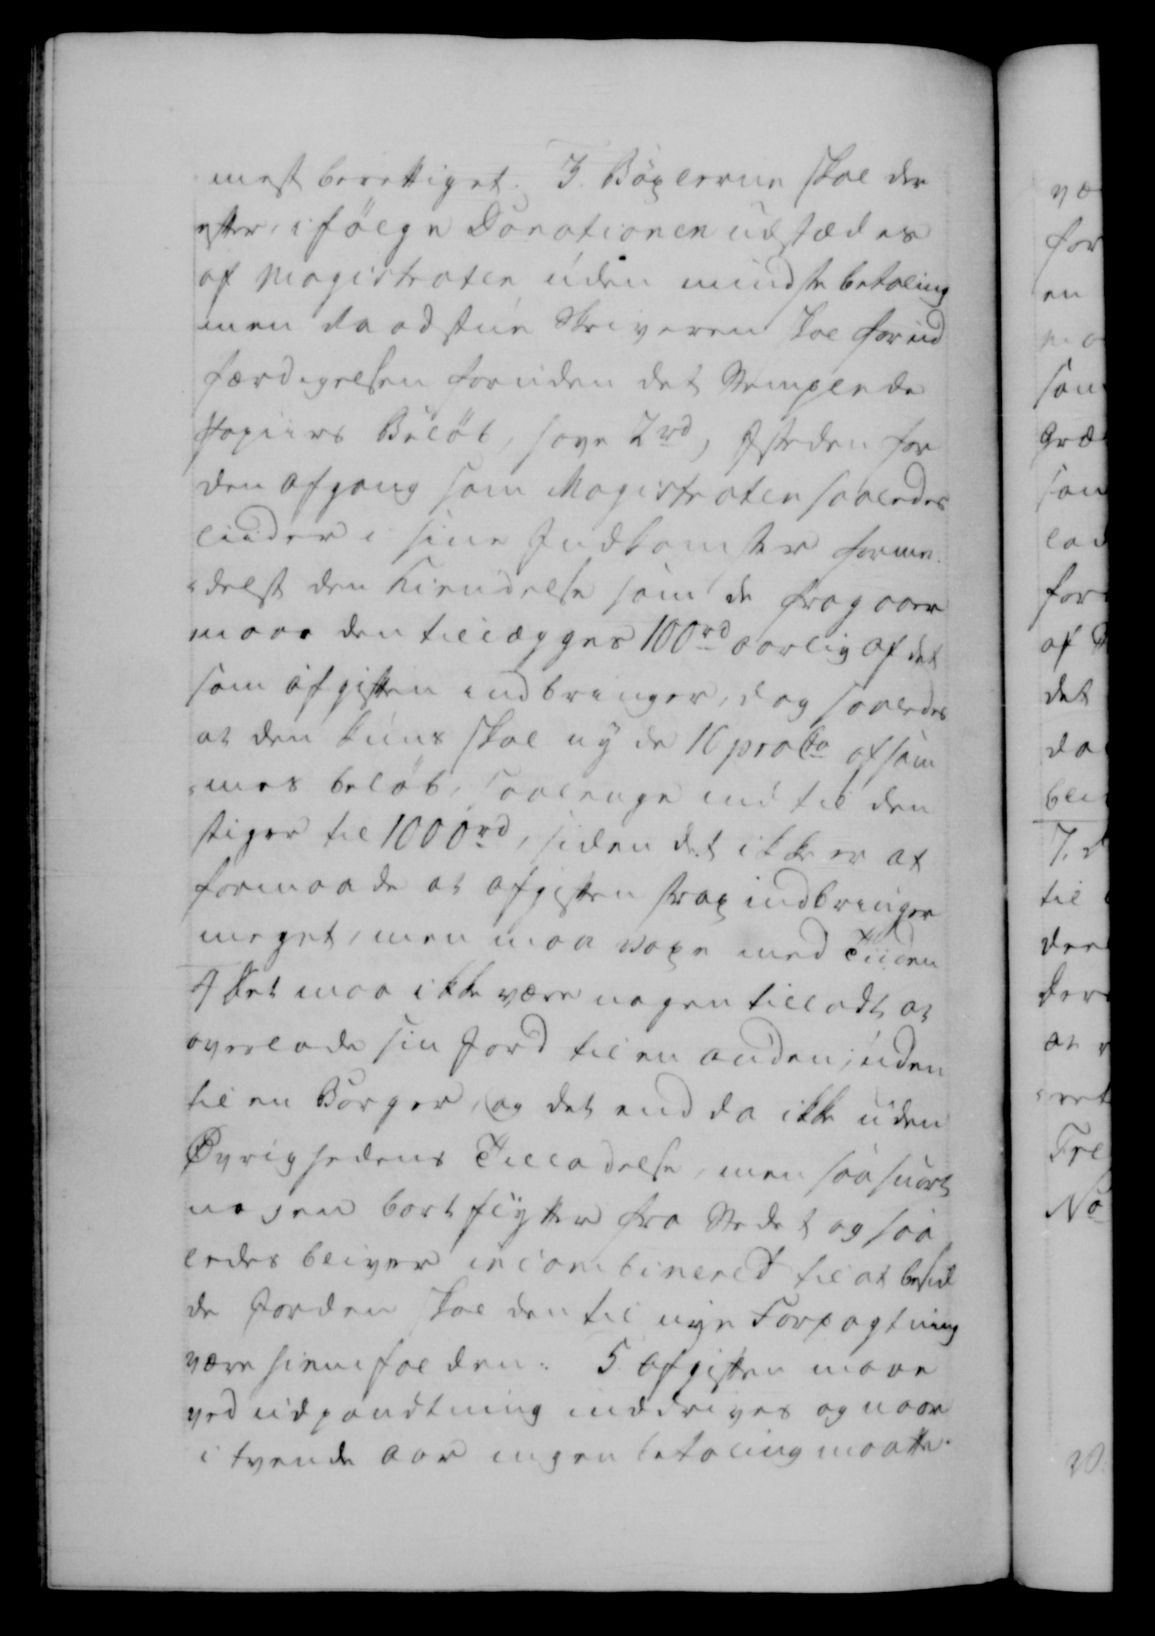 mest berettiget. 3. Böxlerne skal der
efter, i fölge Donationen udstædes
af Magistraten uden mindste betaling
men Raadstue Skriveren skal for ud
færdigelsen foruden det Stemplede
Papiirs Belöb, have 2 rd, Isteden for
den afgang som Magistraten saaledes
liider i sine Indkomster forme
delst den Kiendelse som de fragaaer
maae den tillægges 100 rd aarlig af det
som afgiften indbringer, dog saaledes
at den kuns skal nyde 10 pro Cto af sam
mes belöb, saalenge indtil den
stiger til 1000 rd, siden det ikke er at
formode at afgiften strax indbringer
meget, men maa voxe med Tiiden
4 Det maa ikke være nogen tilladt at
overlade sin Jord til en anden, uden
til en Borger, og det end da ikke uden
Øvrighedens Tilladelse, men saasnart
nogen bortflytter fra Stedet og saa
ledes bliver incombinered til at besid
de Jorden skal den til nye Forpagtning
være hiemfalden. 5 Afgiften maae
ved udpandtning inddrives og naar
i tvende aar ingen betaling maatte